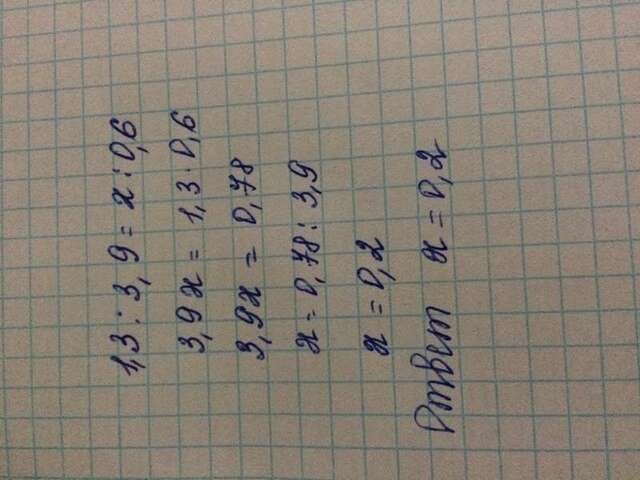 1,3 : 3,9 = x : 0,6
3,9x = 1,3 · 0,6
3,9x = 0,78
x = 0,78 : 3,9
x = 0,2
Ответ x = 0,2